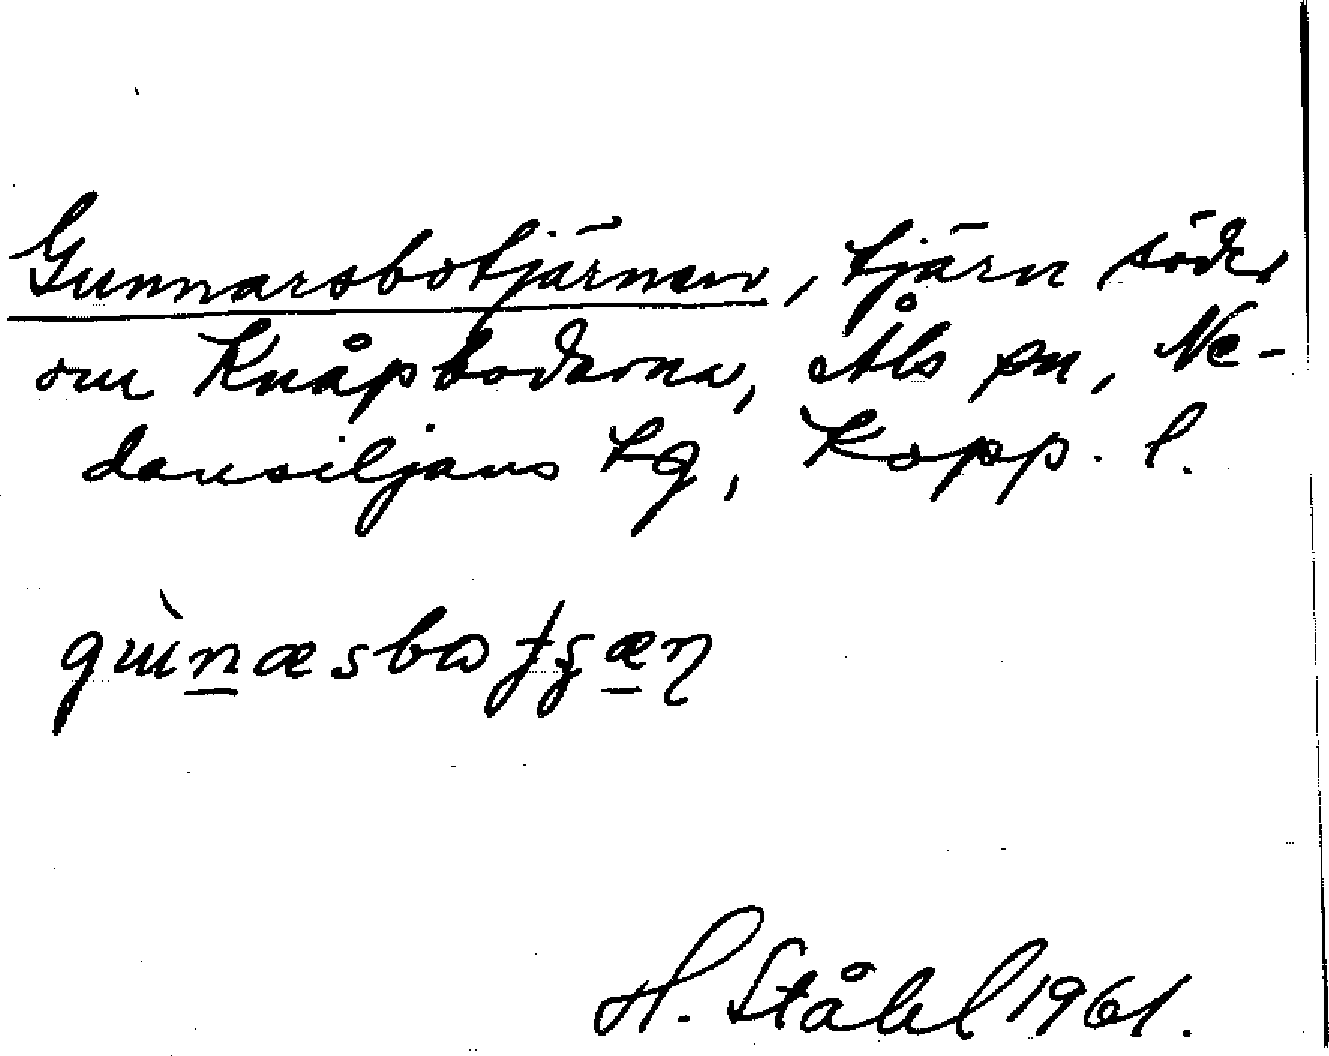 Gunnarsbotjärnen, tjärn söder
om Knåpbodarna, Åls sn, Ne-
dansiljans tg, Kopp. l.
H. Ståhl 1961.